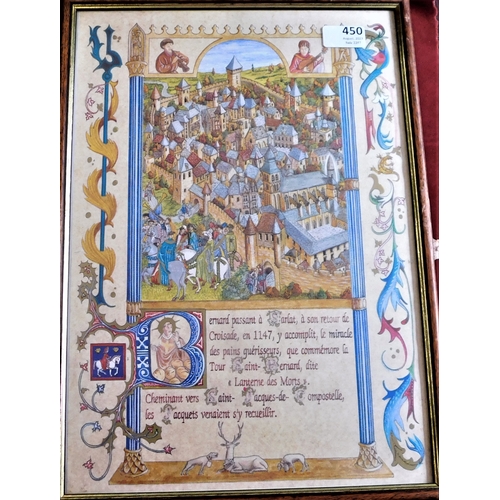 450
Bernard passant à Sarlat, à son retour de
Croisade, en 1147, y accomplit, le miracle
des pains guérisseurs, que commémore la
Tour Saint-Bernard, dite
« Lanterne des Morts ».
Cheminant vers Saint-Jacques-de-Compostelle,
les Jacquets venaient s'y recueillir.